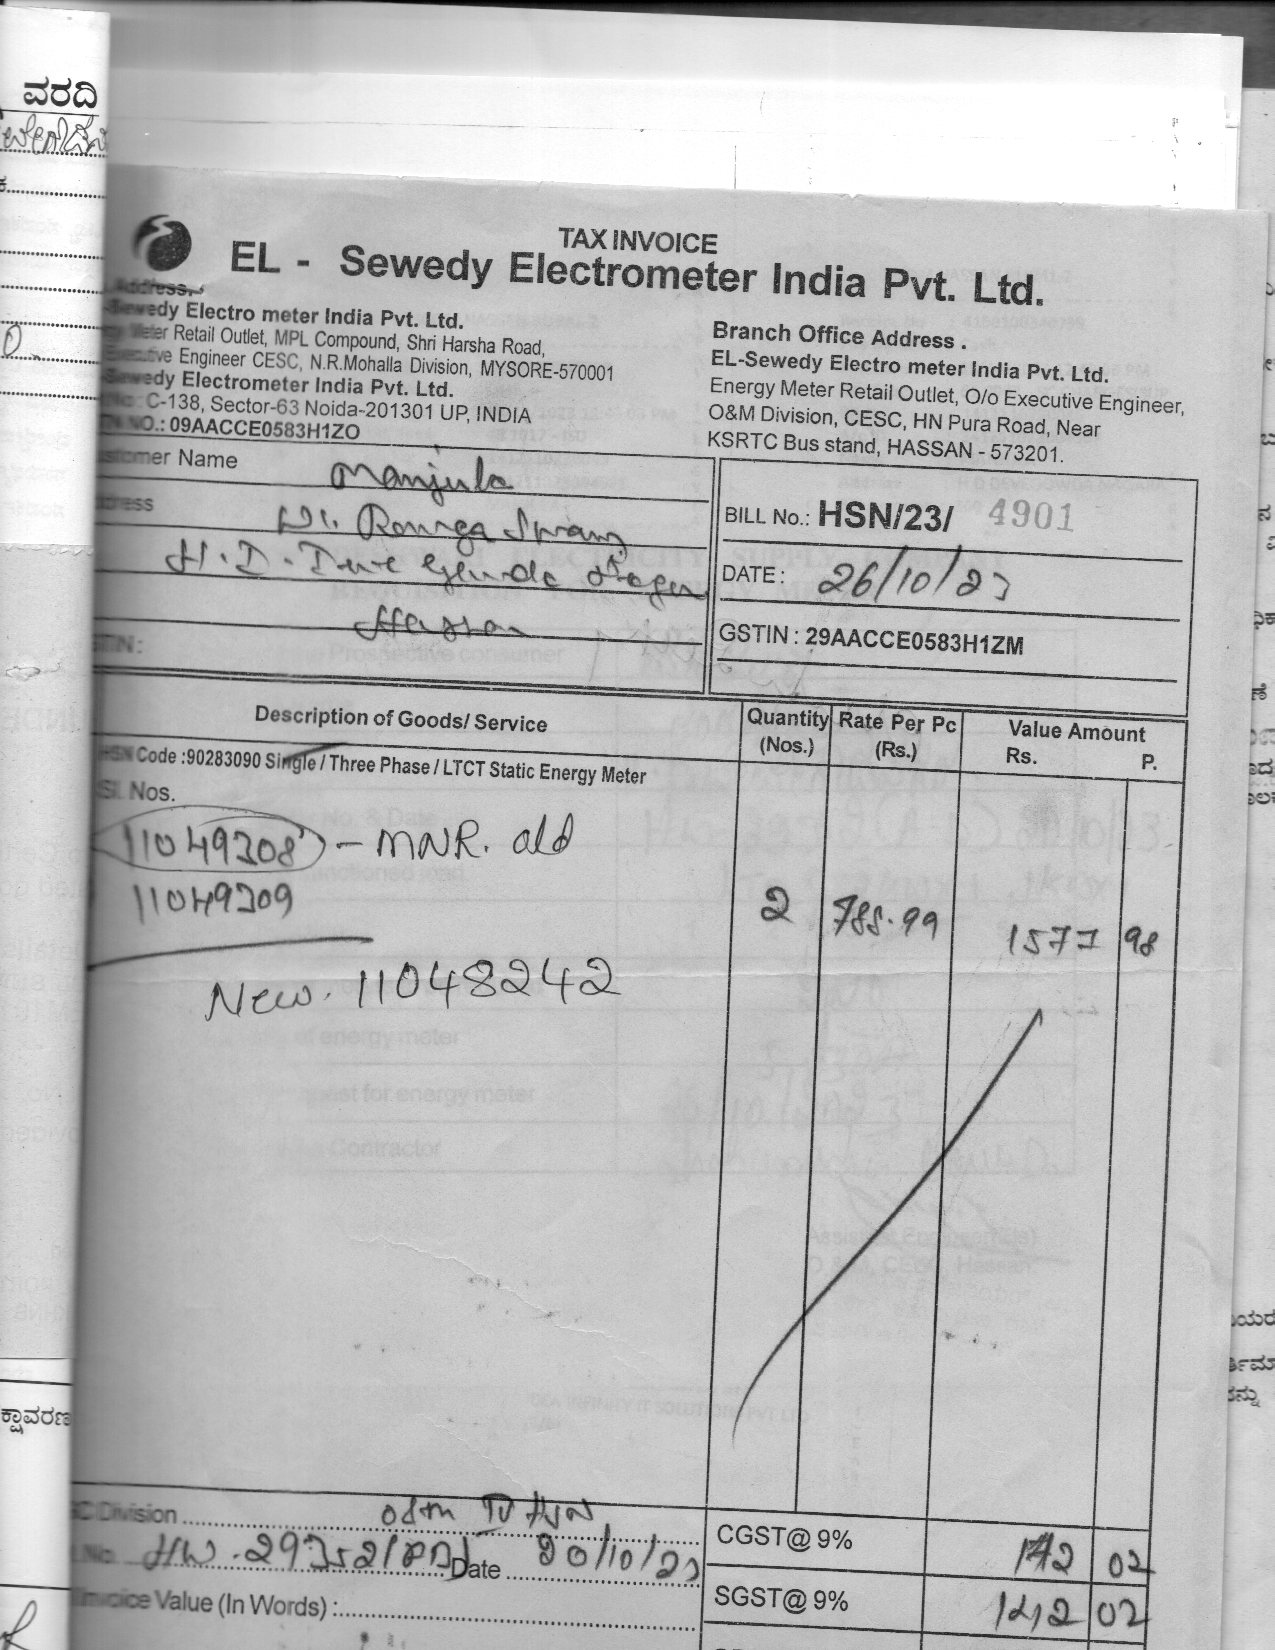 ವರದಿ
TAX INVOICE
EL - Sewedy Electrometer India Pvt. Ltd.
Address,
Sewedy Electro meter India Pvt. Ltd.
Meter Retail Outlet, MPL Compound, Shri Harsha Road,
Executive Engineer CESC, N.R.Mohalla Division, MYSORE-570001
Sewedy Electrometer India Pvt. Ltd.
C-138, Sector-63 Noida-201301 UP, INDIA
NO.: 09AACCE0583H1ZO
Branch Office Address .
EL-Sewedy Electro meter India Pvt. Ltd.
Energy Meter Retail Outlet, O/o Executive Engineer,
O&M Division, CESC, HN Pura Road, Near
KSRTC Bus stand, HASSAN - 573201.
Customer Name Manjula
Address
H. D. Nagar
Hassan
GSTIN :
BILL No.: HSN/23/ 4901
DATE : 26/10/23
GSTIN : 29AACCE0583H1ZM
Description of Goods/ Service Quantity (Nos.) Rate Per Pc (Rs.) Value Amount Rs. P.
HSN Code :90283090 Single / Three Phase / LTCT Static Energy Meter
Sl. Nos.
11049308 - MNR. old
11049309
2 788.99 1577 98
New. 11048242
Division O&m IV HSN
No. Date 20/10/23
Invoice Value (In Words) :
CGST@ 9% 142 02
SGST@ 9% 142 02
ಕ್ಷಾವರಣ